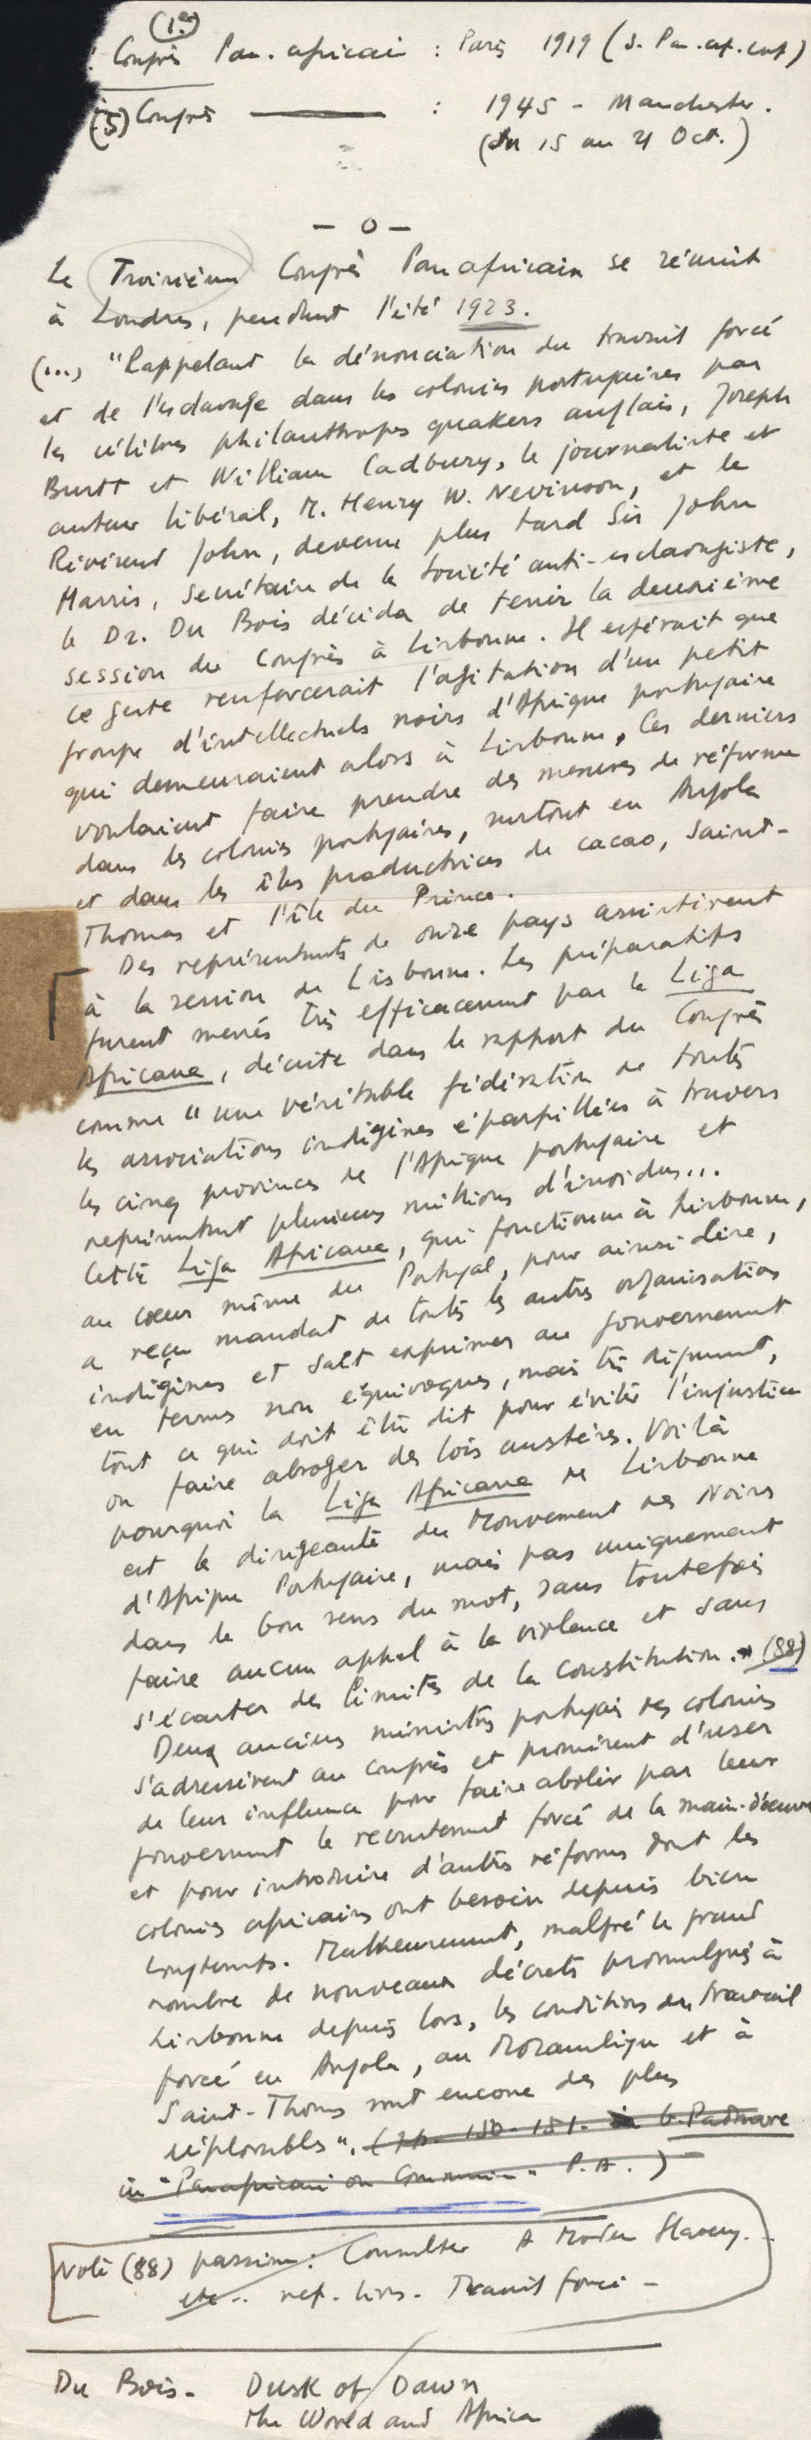 (1er)
Congrès Pan-africain : Paris 1919 (S. Pan.af.
(5) Congrès ——— : 1945 - Manchester.
(du 15 au 21 Oct.)
- o -
Le Troisième Congrès Panafricain se réunit
à Londres, pendant l'été 1923.
(...) "Rappelant la dénonciation du travail forcé
et de l'esclavage dans les colonies portugaises par
les célèbres philanthropes quakers anglais, Joseph
Burtt et William Cadbury, le journaliste et
auteur libéral, M. Henry W. Nevinson, et le
Révérend John, devenu plus tard Sir John
Harris, secrétaire de la Société anti-esclavagiste,
le Dr. Du Bois décida de tenir la deuxième
session du Congrès à Lisbonne. Il espérait que
ce geste renforcerait l'agitation d'un petit
groupe d'intellectuels noirs d'Afrique portugaise
qui demeuraient alors à Lisbonne. Ces derniers
voulaient faire prendre des mesures de réforme
dans les colonies portugaises, surtout en Angola
et dans les îles productrices de cacao, Saint-
Thomas et l'île du Prince.
Des représentants de onze pays assistèrent
à la session de Lisbonne. Les préparatifs
furent menés très efficacement par la Liga
Africana, décrite dans le rapport du Congrès
comme "une véritable fédération de toutes
les associations indigènes éparpillées à travers
les cinq provinces de l'Afrique portugaise et
représentant plusieurs millions d'individus...
Cette Liga Africana, qui fonctionne à Lisbonne,
au cœur même du Portugal, pour ainsi dire,
a reçu mandat de toutes les autres organisations
indigènes et sait exprimer au gouvernement
en termes non équivoques, mais très dignement,
tout ce qui doit être dit pour éviter l'injustice
ou faire abroger des lois austères. Voilà
pourquoi la Liga Africana de Lisbonne
est la dirigeante du Mouvement des Noirs
d'Afrique Portugaise, mais pas uniquement
dans le bon sens du mot, sans toutefois
faire aucun appel à la violence et sans
s'écarter des limites de la Constitution." (88)
Deux anciens ministres portugais des colonies
s'adressèrent au congrès et promirent d'user
de leur influence pour faire abolir par leur
gouvernement le recrutement forcé de la main-d'œuvre
et pour introduire d'autres réformes dont les
colonies africaines ont besoin depuis bien
longtemps. Malheureusement, malgré le grand
nombre de nouveaux décrets promulgués à
Lisbonne depuis lors, les conditions du travail
forcé en Angola, au Mozambique et à
Saint-Thomas sont encore des plus
déplorables". (pp. 150-151. G. Padmore
in "Panafricani ou Commun" P.A.)
Note (88) passim: Consulter A Modern Slavery...
etc.. ref. livs. Travail forcé -
Du Bois - Dusk of Dawn
The World and Africa